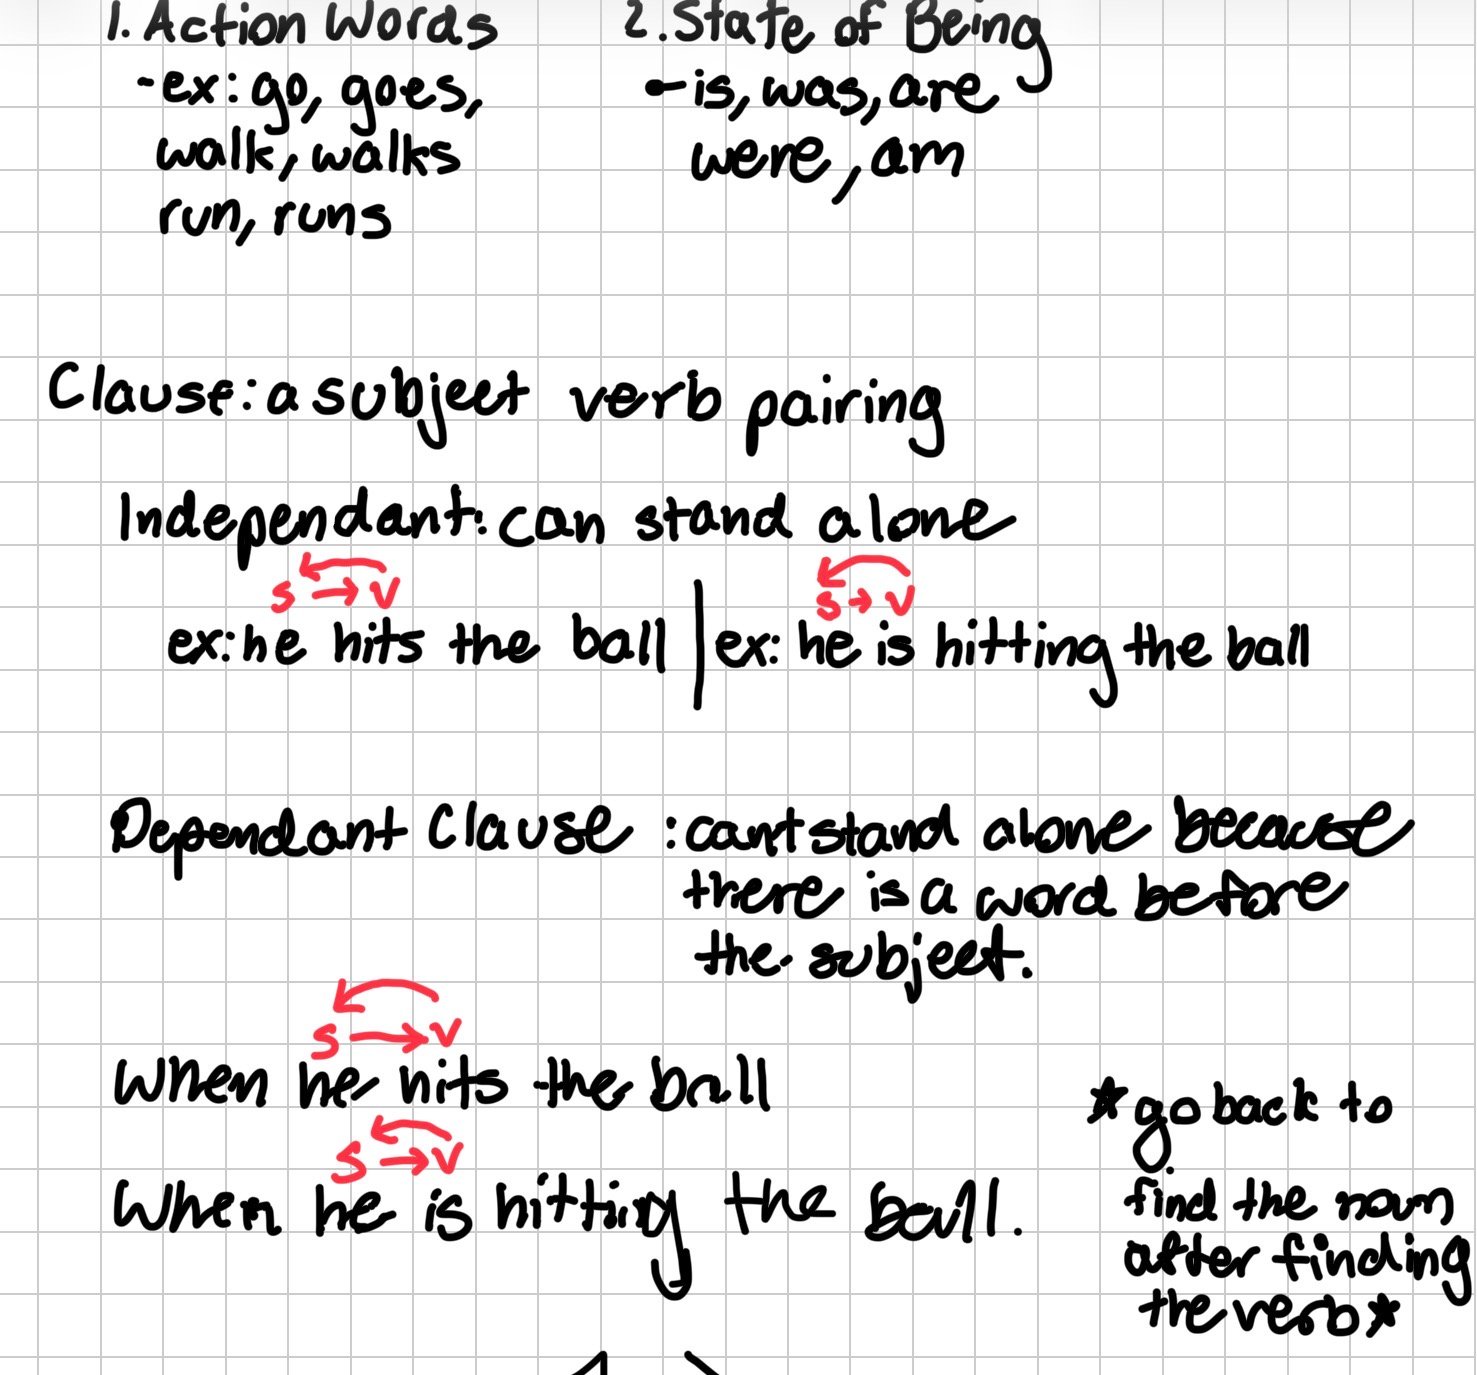 1. Action Words 2. State of Being
-ex: go, goes, - is, was, are
walk, walks were, am
run, runs
Clause: a subject verb pairing
Independant: can stand alone
s → v s → v
ex: he hits the ball | ex: he is hitting the ball
Dependant Clause : cant stand alone because
there is a word before
the subject.
s → v
When he hits the ball
s → v
When he is hitting the ball.
*go back to
find the noun
after finding
the verb*